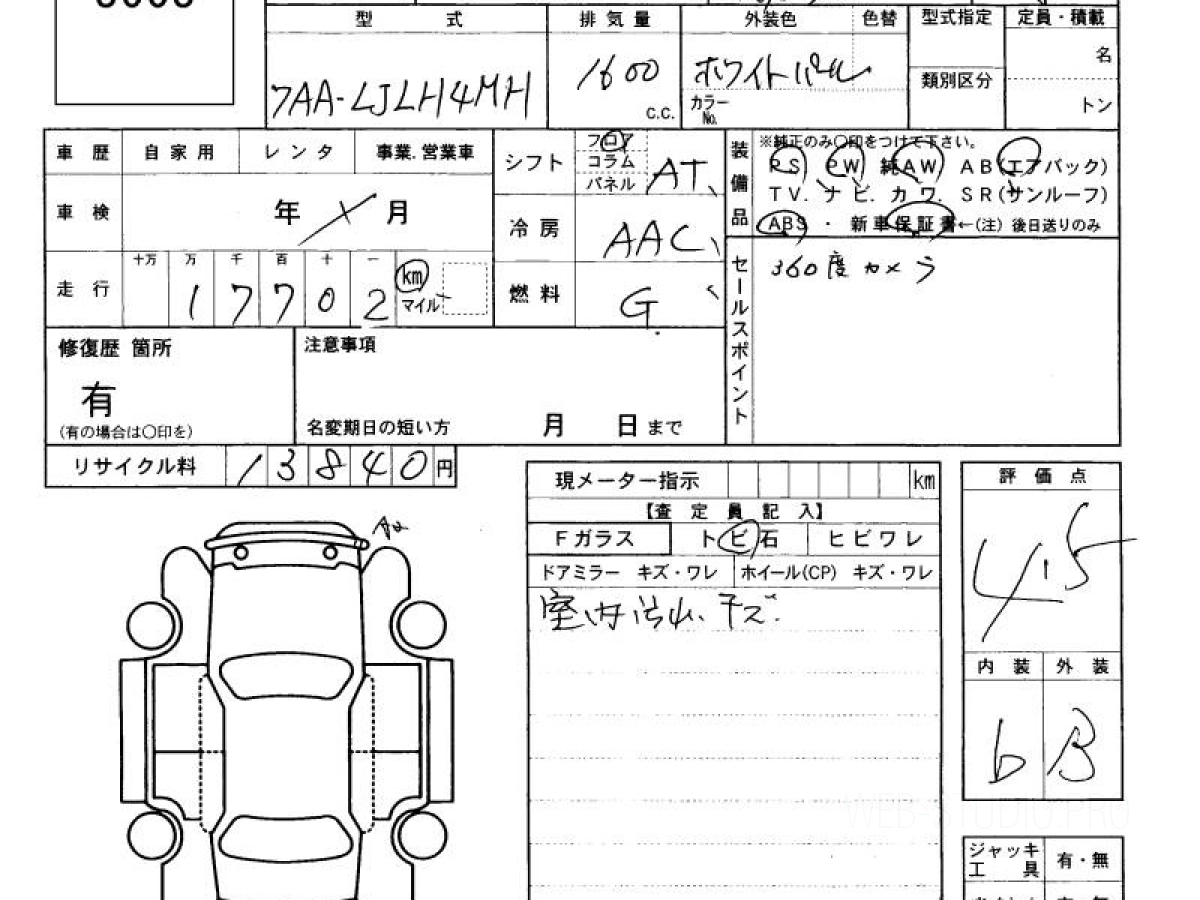 型式 排気量 外装色 色替 型式指定 定員・積載
7AA-LJLH4MH 1600 c.c. ホワイトパール 名
カラーNo. 類別区分 トン
車歴 自家用 レンタ 事業.営業車
シフト フロア コラム パネル AT
装備品 ※純正のみ〇印をつけて下さい。
PS PW 純AW AB(エアバック)
TV. ナビ. カワ. SR(サンルーフ)
ABS ・ 新車保証書←(注) 後日送りのみ
車検 年 月
冷房 AAC
走行 十万 万 千 百 十 一
1 7 7 0 2 km マイル
燃料 G
セールスポイント 360度カメラ
修復歴 箇所
有
(有の場合は〇印を)
注意事項
名変期日の短い方 月 日まで
リサイクル料 13840円
現メーター指示 km
【査定員記入】
Fガラス トビ石 ヒビワレ
ドアミラー キズ・ワレ ホイール(CP) キズ・ワレ
室内汚れ、キズ.
評価点
4.5
内装 外装
b B
ジャッキ 工具 有・無
WEB-STUDIO.PRO